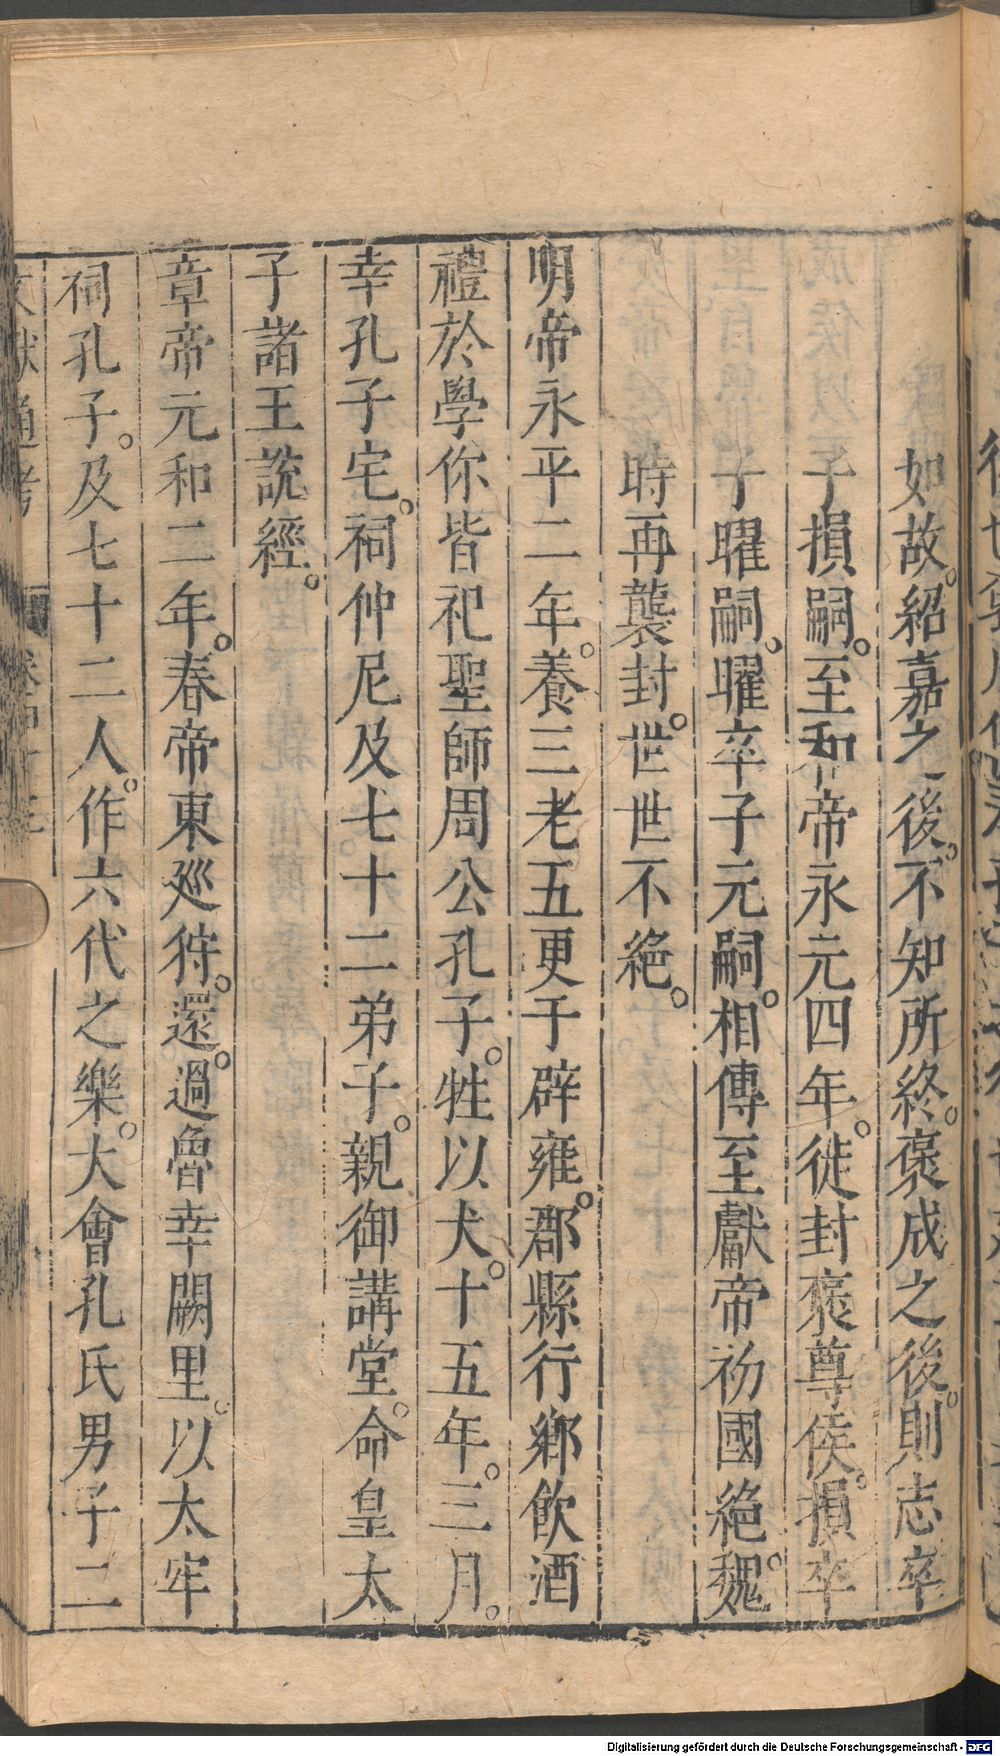 如故。紹嘉之後。不知所終。褒成之後。則志卒
子損嗣。至和帝永元四年。徙封褒尊侯。損卒
子曜嗣。曜卒子元嗣。相傳至獻帝初國絶。魏
時再襲封。世世不絶。
明帝永平二年。養三老五更于辟雍。郡縣行鄉飲酒
禮於學你皆祀聖師周公孔子。牲以犬。十五年。三月。
幸孔子宅。祠仲尼及七十二弟子。親御講堂。命皇太
子諸王說經。
章帝元和二年。春帝東廵狩。還。過魯幸闕里。以太牢
祠孔子。及七十二人。作六代之樂。大會孔氏男子二
文獻通考 卷四十三
Digitalisierung gefördert durch die Deutsche Forschungsgemeinschaft - DFG